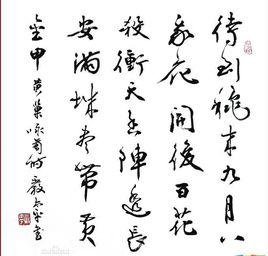 待到秋来九月八
我花開後百花
殺衝天香陣透長
安滿城尽帶黄
金甲 黄巢咏菊詩 書